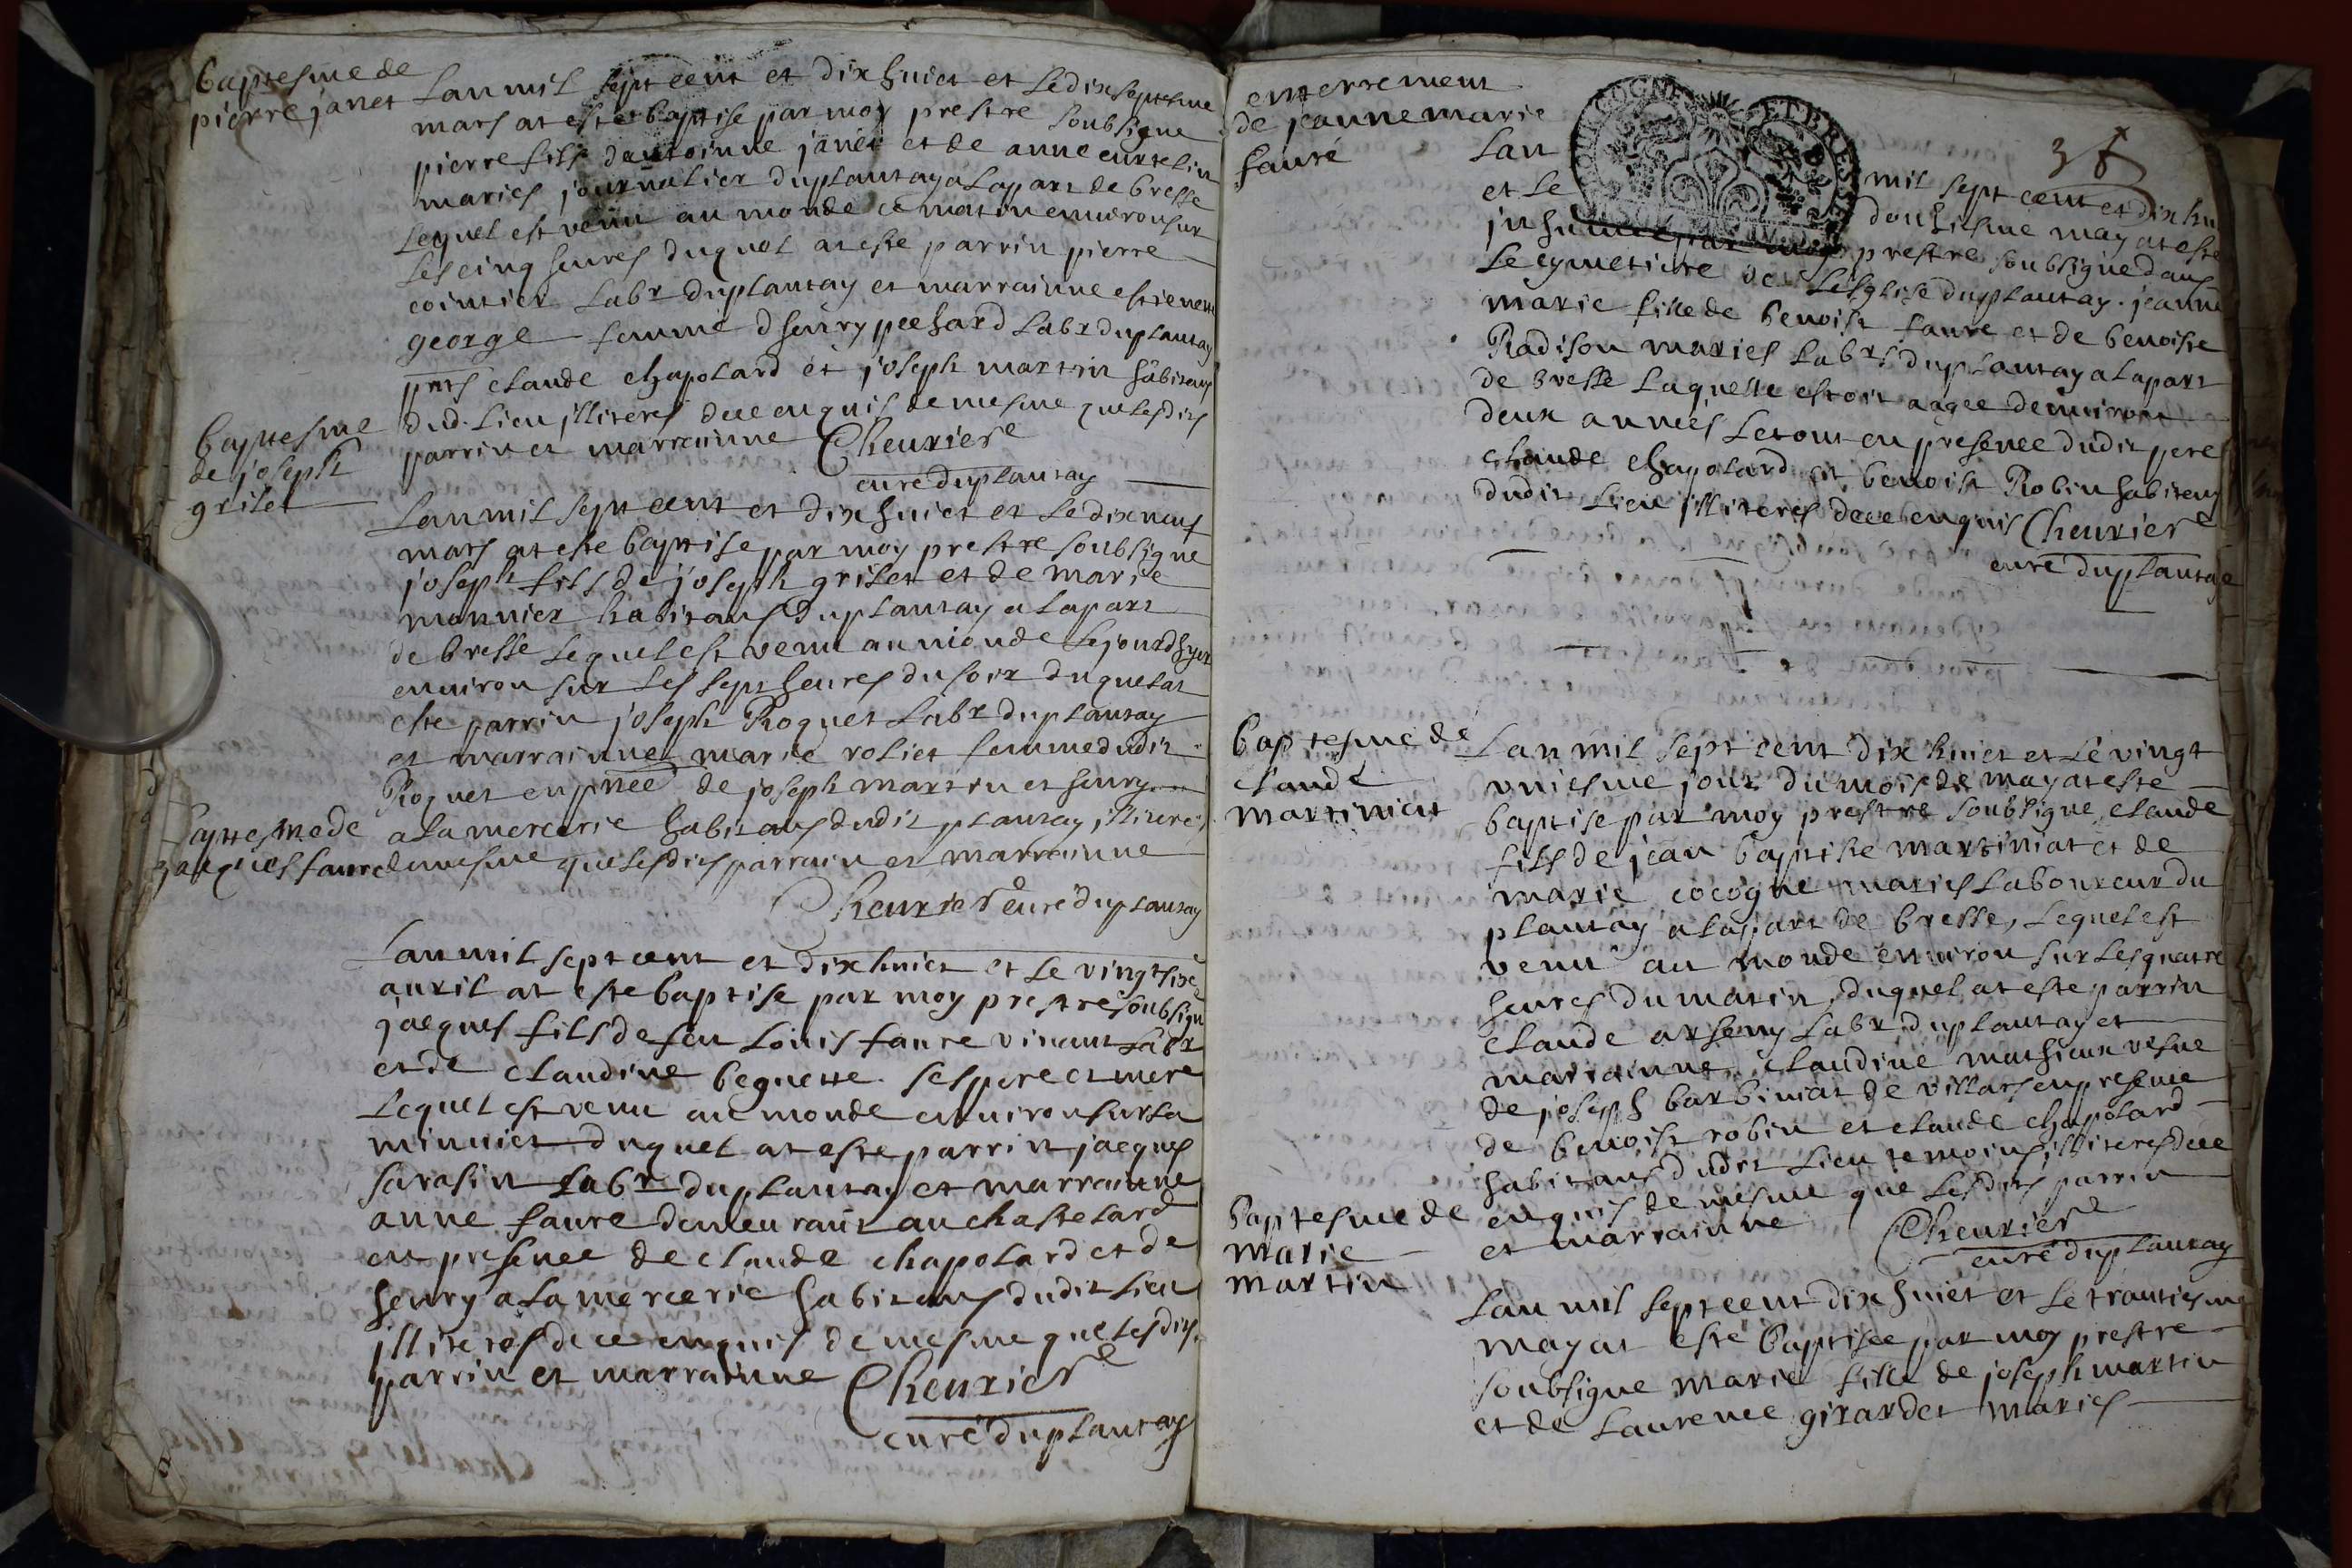 baptesme de
pierre janet
Lan mil sept cent et dix huict et le dix septesme
mars at este baptise par moy prestre soubsigne
pierre fils dantoinne janet et de anne curtelin
maries journalier duplantay alapart de bresse
Lequel est venu au monde ce matin environ sur
les cinq heures duquel at este parrin pierre
cointier Labr duplantay et marrainne estienette
george femme dhenry pechard Labr duplantay
pnts claude chapolard et joseph martin habitans
dud. Lieu illiteres dece enquis de mesme que lesdits
parrin et marrainne Cheurier
curé duplantay
baptesme
de joseph
grilet
Lan mil sept cent et dix huict et le dix neuf
mars at este baptise par moy prestre soubsigne
joseph fils de joseph grilet et de marie
monnier habitans duplantay alapart
de bresse Lequel est venu au monde Le jourdhyer
environ sur les sept heures du soir duquel at
este parrin joseph Roquet Labr duplantay
et marrainne marie roliet femme dudit
Roquet en pnce de joseph martin et henry
alamercerie habitans dudit plantay, illiteres
de mesme que lesdits parrain et marrainne
Cheurier curé duplantay
baptesme de
jacques faure
Lan mil sept cent et dix huict et le vingt sixe
avril at este baptise par moy prestre soubsign
jacques fils de feu Louis faure vivant Labr
et de claudine beguette ses pere et mere
Lequel est venu au monde environ sur la
minuict duquel at este parrin jacques
sarasin Labr duplantay et marrainne
anne faure demeurant au chastelard
en presence de claude chapolard et de
henry alamercerie habitans dudit Lieu
illiteres de ce enquis de mesme que lesdits
parrin et marrainne Cheurier
curé duplantay
enterrement
de jeanne marie
fauré
38
Lan mil sept cent et dix hu
et le douziesme may at este
inhumée par moy prestre soubsigne dans
Le cymetiere de Lesglise duplantay. jeanne
marie fille de benoist faure et de benoiste
Radison maries Labrs duplantay alapart
de bresse Laquelle estoit aagee denviron
deux annees Le tout en presence dudit pere
claude chapolard et benoist Robin habitans
dudit Lieu illiteres dece enquis Cheurier
curé duplantay
baptesme de
claude
martiniat
Lan mil sept cent dix huict et le vingt
uniesme jour du mois de may at este
baptise par moy prestre soubsigne claude
fils de jean baptiste martiniat et de
marie cocogne maries Laboureur du
plantay alapart de bresse, Lequel est
venu au monde environ sur les quatre
heures du matin, duquel at este parrin
claude arseny Labr duplantay et
marrainne claudine mathieux vefue
de joseph barbiniat de villars en presence
de benoist robin et claude chapolard
habitans dudit Lieu temoins illiteres dece
enquis de mesme que lesdits parrin
et marrainne Cheurier
curé duplantay
baptesme de
marie
martin
Lan mil sept cent dix huict et le trantiesme
may at esté baptisee par moy prestre
soubsigne marie fille de joseph martin
et de Laurence girardet maries